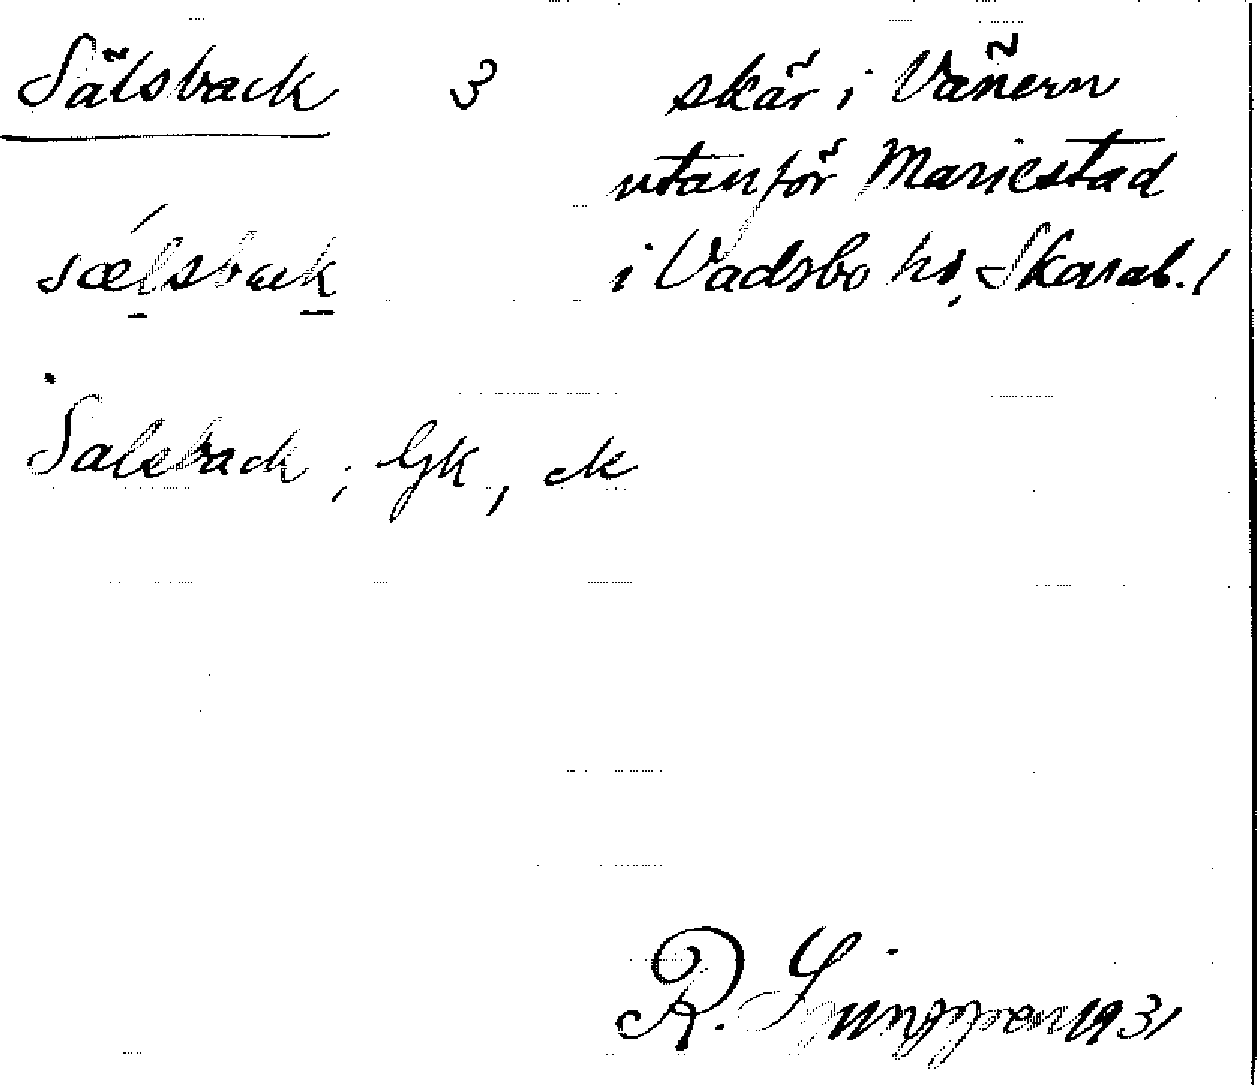 Sälsback 3 skär i Vänern
utanför Mariestad
sælsback i Vadsbo hd, Skarab. l
Salsback ; Gk, ek
R. Ljunggren 1931